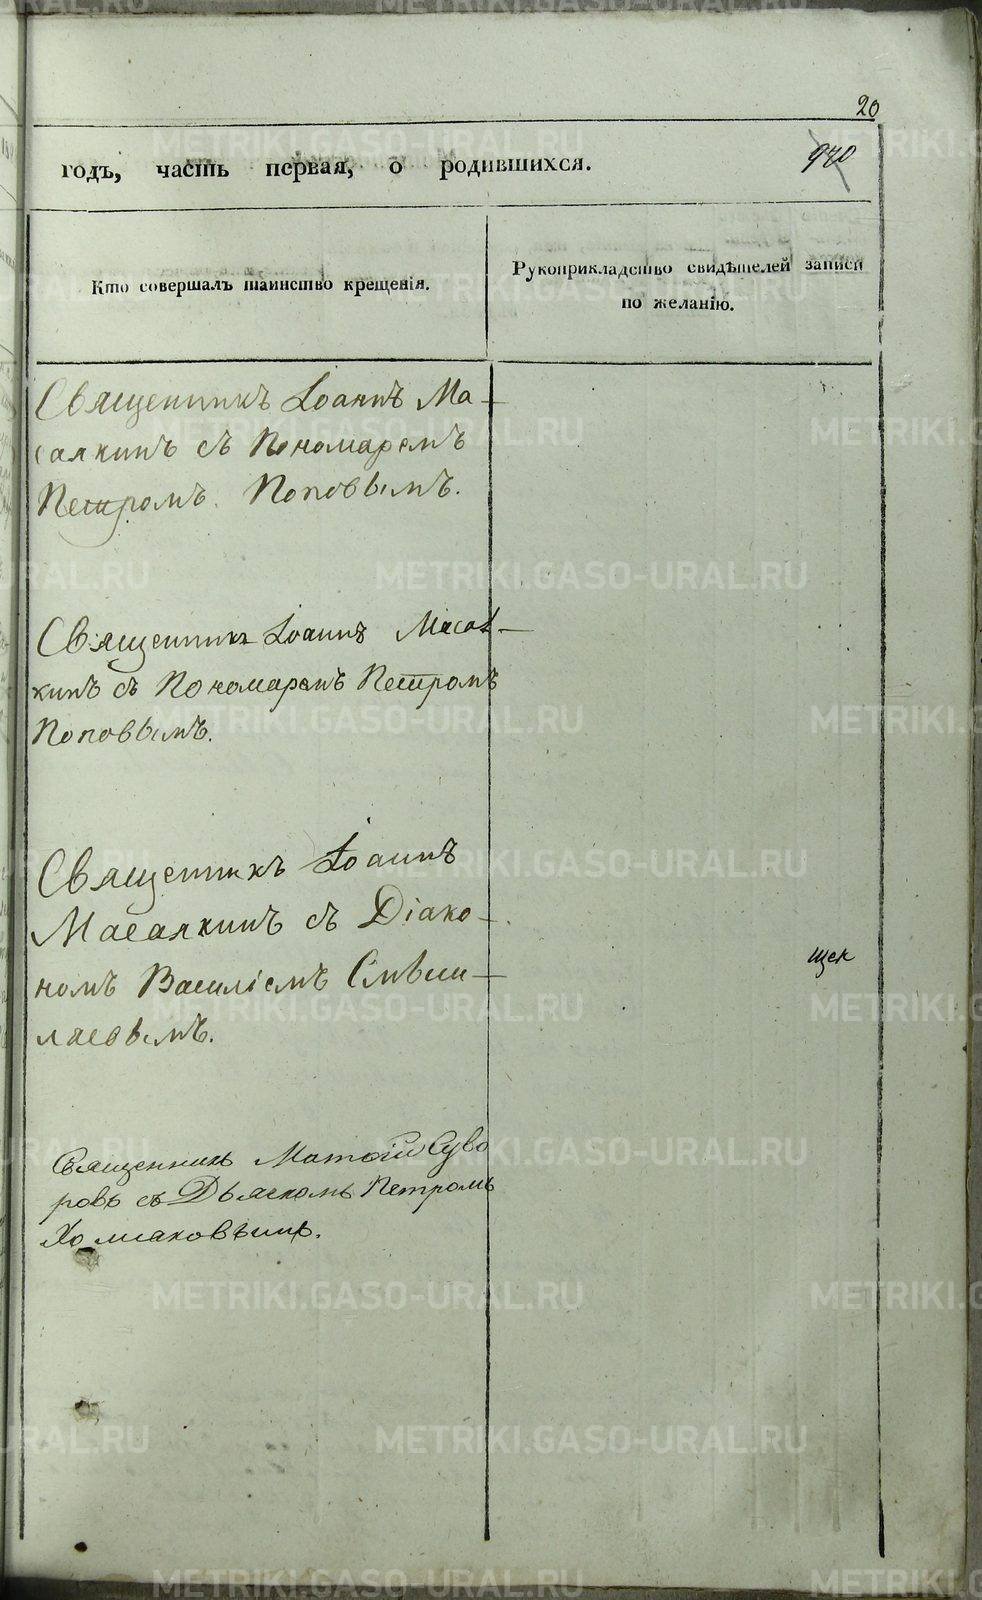 20
годъ, часть первая, о родившихся.
940
Кто совершалъ таинство крещенія.
Рукоприкладство свидѣтелей записи
по желанію.
Священникъ Іоаннъ Ма-
салкинъ съ Пономаремъ
Петромъ Поповымъ.
Священникъ Іоаннъ Масал-
кинъ съ Пономаремъ Петромъ
Поповымъ.
Священникъ Іоаннъ
Масалкинъ съ Діако-
номъ Василіемъ
лаевымъ.
Священникъ Матѳій Суво
ровъ съ Дьячкомъ Петромъ
Холмаковымъ.
METRIKI.GASO-URAL.RU